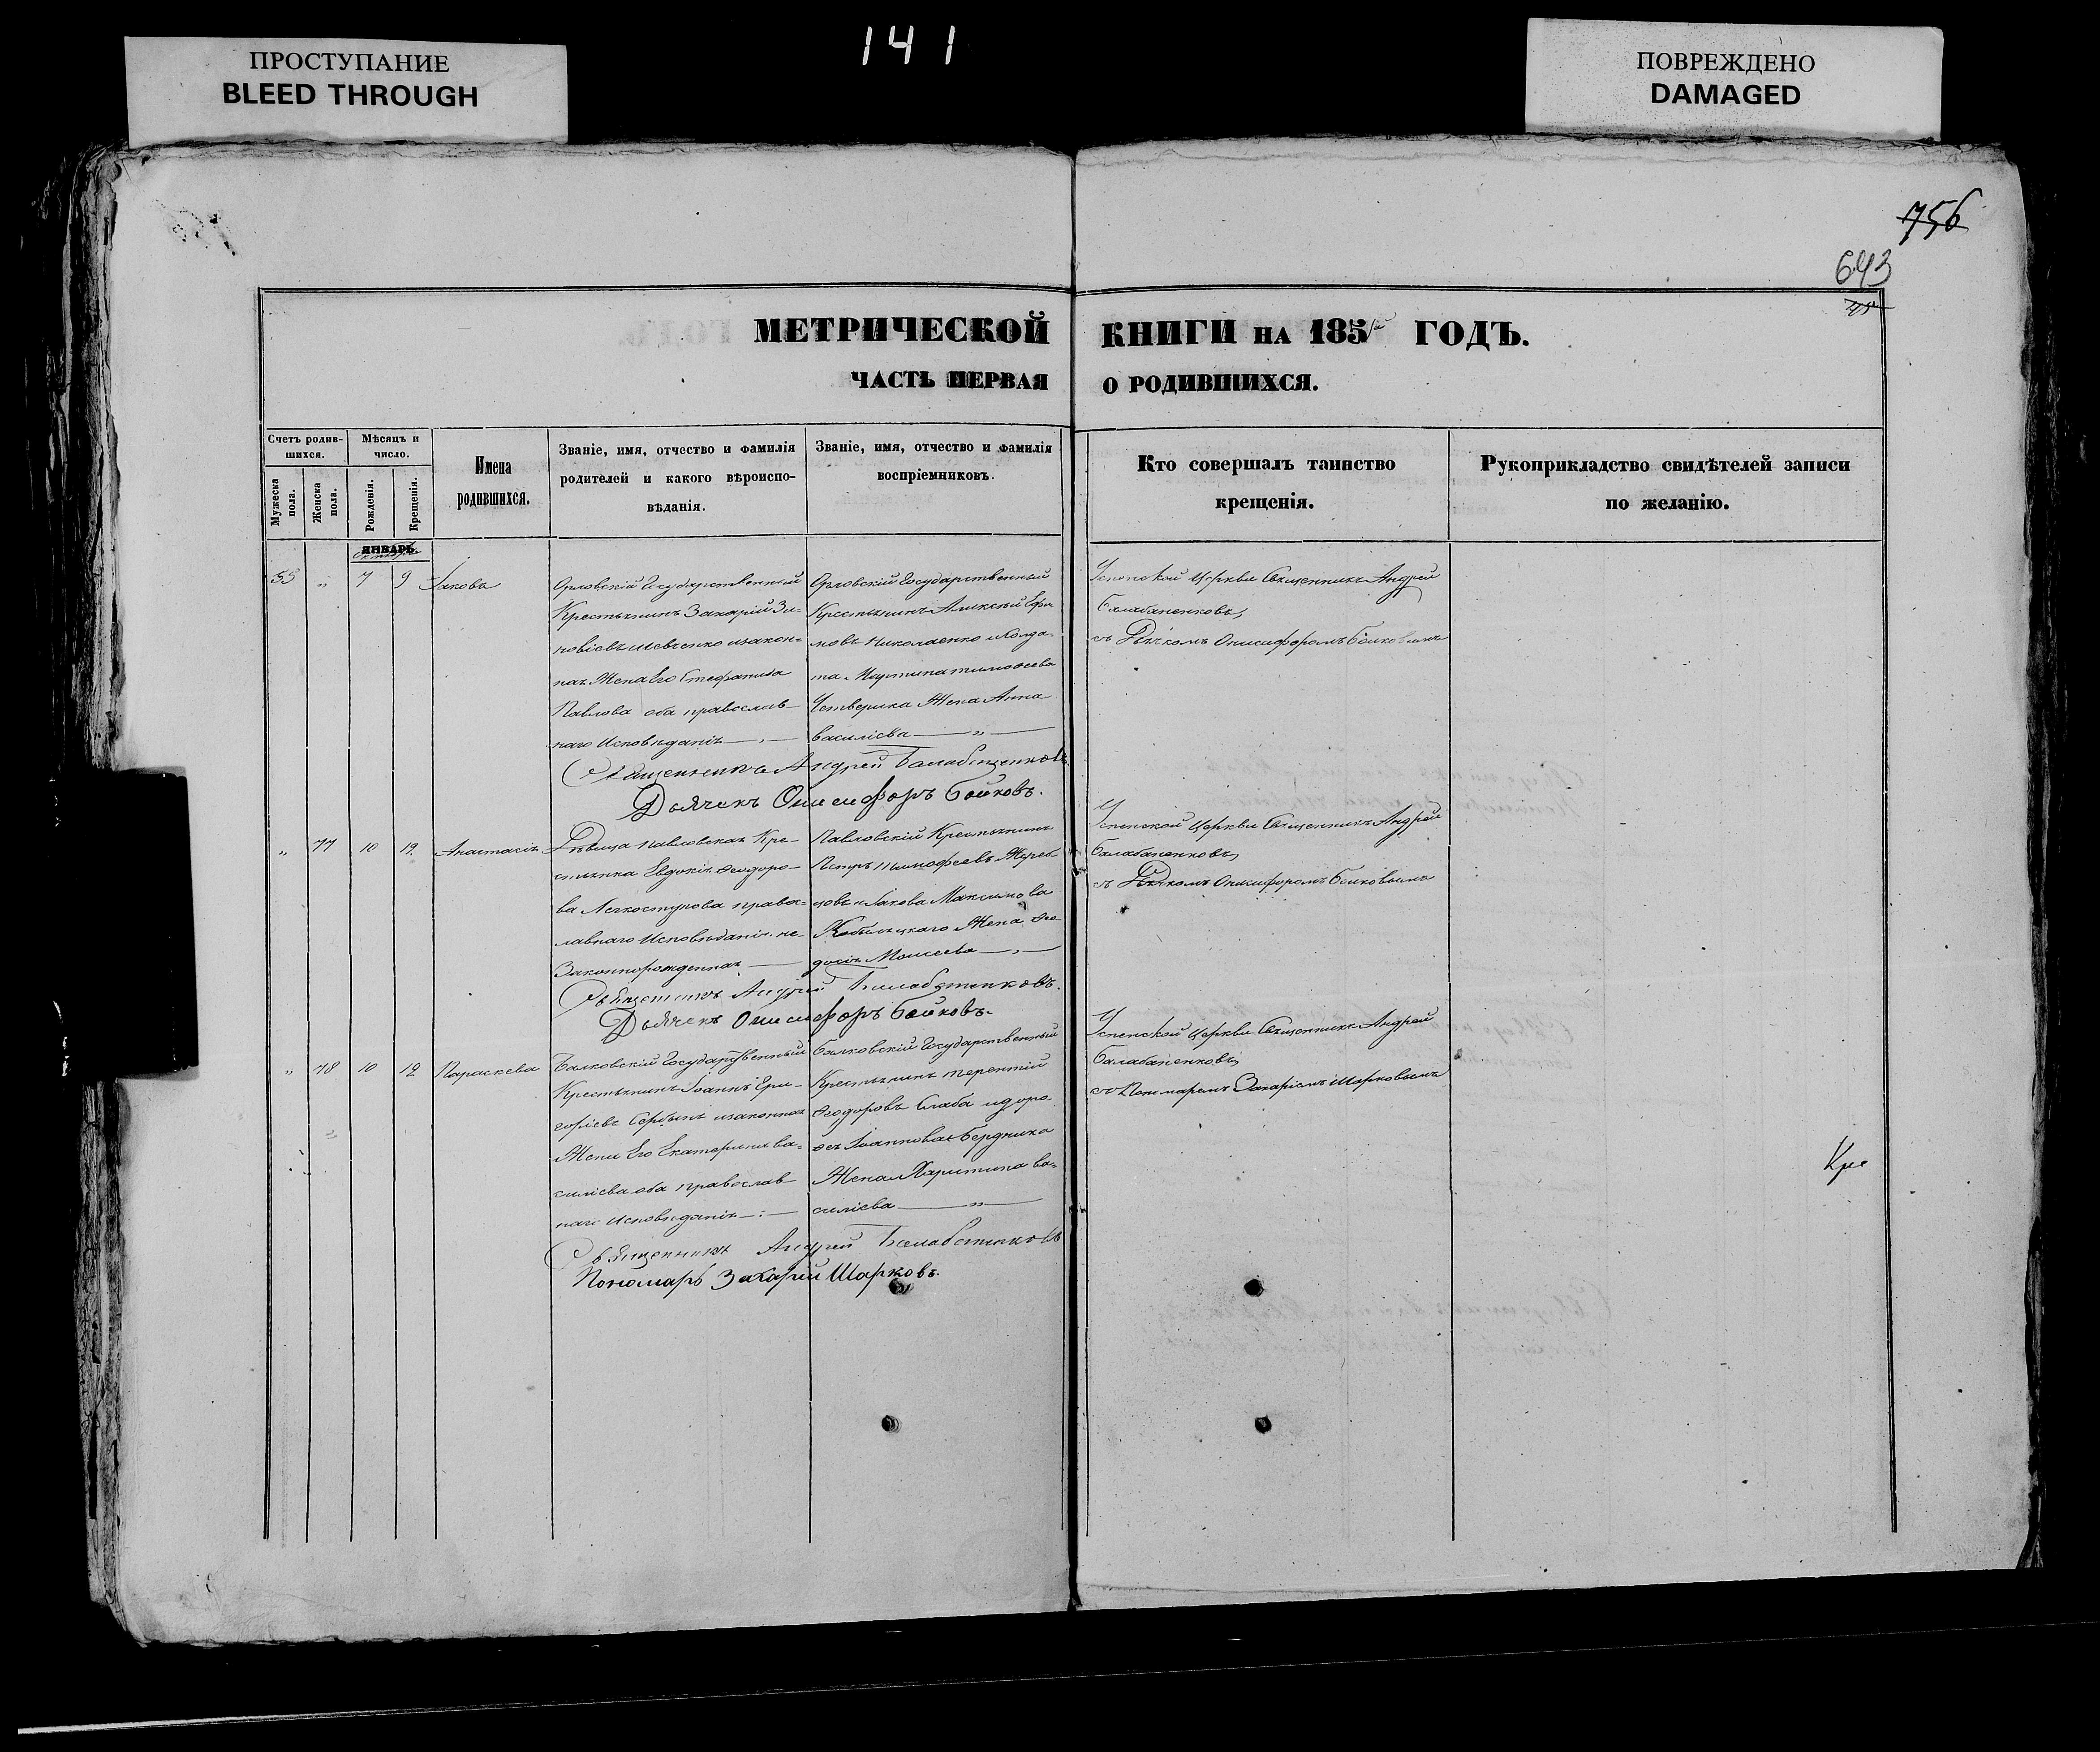 ПРОСТУПАНИЕ
BLEED THROUGH
141
ПОВРЕЖДЕНО
DAMAGED
756
643
МЕТРИЧЕСКОЙ КНИГИ НА 185 ГОДЪ.
ЧАСТЬ ПЕРВАЯ О РОДИВШИХСЯ.
Счетъ родив-
шихся.
Мужеска
пола.
Женска
пола.
Мѣсяцъ и
число.
Рожденія.
Крещенія.
Имена
родившихся.
Званіе, имя, отчество и фамилія
родителей и какого вѣроиспо-
вѣданія.
Званіе, имя, отчество и фамилія
воспріемниковъ.
Кто совершалъ таинство
крещенія.
Рукоприкладство свидѣтелей записи
по желанію.
ЯНВАРЬ
Октябрь
55 „ 7 9 Іаковъ
Орловскій Государственный
Крестьянинъ Захарій Зи-
новіевъ Шевченко изакон-
ная Жена Его Стефанида
Павлова оба православ-
наго Исповѣданія
Орловскій Государственный
Крестьянинъ Алексѣй Ефи-
мовъ Николаенко иСолда-
та Мартина тимоѳеева
Четверика Жена Анна
василіева
Успенской Церкви Священникъ Андрей
Балабаненковъ,
съ Дьячкомъ Онисифоромъ Бойковымъ
Священникъ Андрей Балабаненковъ
Дьячекъ Онисифоръ Бойковъ.
„ 77 10 19 Анастасія
Дѣвица Павловская Кре-
стьянка Евдокія Ѳеодоро-
ва Легкоступова правос-
лавнаго Исповѣданія не-
Законнорожденная
Павловскій Крестьянинъ
Петръ Тимофеевъ Жереб-
цовъ и Іакова Максимова
Кобыляцкаго Жена Ѳео-
досія Моисеева
Успенской Церкви Священникъ Андрей
Балабаненковъ,
съ Дьячкомъ Онисифоромъ Бойковымъ
Священникъ Андрей Балабаненковъ.
Дьячекъ Онисифоръ Бойковъ.
„ 78 10 12 Параскева
Балковскій Государственный
Крестьянинъ Іоаннъ Гри-
горіевъ Сербинъ изаконная
Жена Его Екатерина ва-
силіева оба православ
наго Исповѣданія
Балковскій Государственный
Крестьянинъ терентій
Ѳеодоровъ Слаба идоро-
ѳея Іоаннова Бердника
Жена Харитина ва-
силіева
Успенской Церкви Священникъ Андрей
Балабаненковъ,
съ Пономаремъ Захаріемъ Шарковымъ
Священникъ Андрей Балабаненковъ
Пономарь Захарій Шарковъ.